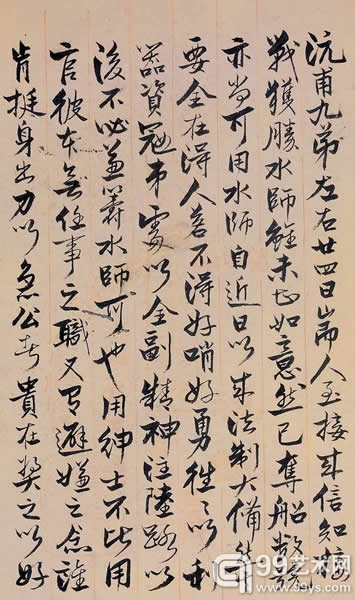 沅甫九弟左右廿四日耑人至接來信知接
戰獲勝水師雖未甚如意然已奪船數號
亦尚可用水師自近日以來法制大備然其
要全在得人若不得好哨好勇往〻以利
器資寇弟處以全副精神注陸路以
後不必兼籌水師可也用紳士不比用
官彼本無任事之職又有避嫌之念誰
肯挺身出力以急公者貴在獎之以好
99艺术网
www.99ys.com